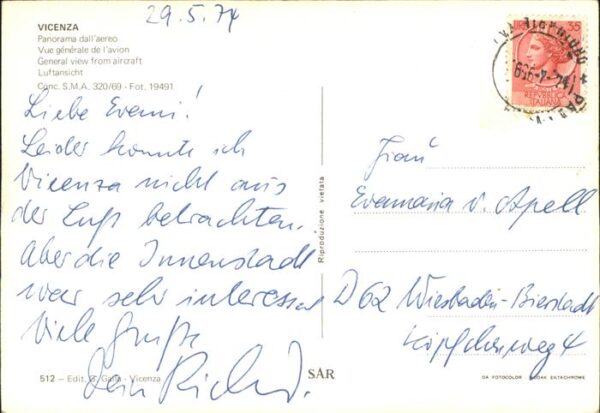 29.5.74
VICENZA
Panorama dall'aereo
Vue générale de l'avion
General view from aircraft
Luftansicht
Conc. S.M.A. 320/69 - Fot. 19491
Liebe Evemi!
Leider konnte ich
Vicenza nicht aus
der Luft betrachten.
Aber die Innenstadt
war sehr interessant
Viele Grüße
Dein Richard.
512 - Edit. G. Galla - Vicenza
SAR
Riproduzione vietata
55
REPUBBLICA
ITALIANA
Frau
Evamaria v. Apell
D 62 Wiesbaden-Bierstadt
Köpfchenweg 4
DA FOTOCOLOR KODAK EKTACHROME